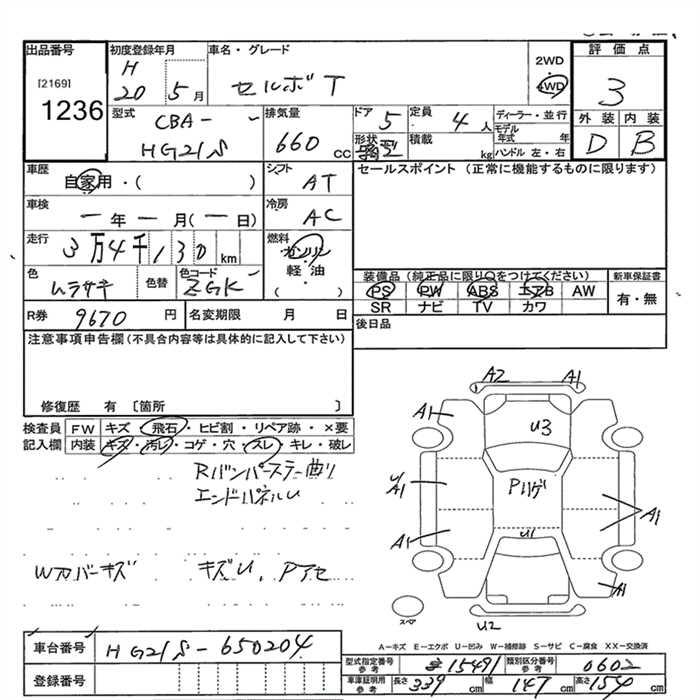 出品番号
[2169]
1236
初度登録年月
H
20 5月
車名・グレード
セルボ T
2WD
4WD
評価点
3
型式
CBA-
HG21S
排気量
660 CC
ドア
5
形状
定員
4人
積載
kg
ディーラー・並行
モデル年式 年
ハンドル 左・右
外装
内装
D
B
車歴
自家用・( )
シフト
AT
セールスポイント (正常に機能するものに限ります)
車検
一年一月(一日)
冷房
AC
走行
3万4千130 km
燃料
ガソリン
軽油
( )
色
ムラサキ
色替
色コード
ZGK
装備品 (純正品に限り○をつけてください)
PS PW ABS エアB AW
SR ナビ TV カワ
新車保証書
有・無
R券 9670 円
名変期限 月 日
後日品
注意事項申告欄(不具合内容等は具体的に記入して下さい)
修復歴 有 [箇所 ]
検査員
記入欄
FW キズ・飛石・ヒビ割・リペア跡・×要
内装 キズ・汚レ・コゲ・穴・スレ・キレ・破レ
Rバンパーステー曲リ
エンドパネルU
Wカバーキズ キズU、Pアセ
A2 A1
A1
U3
Pハゲ
A1
A1
A1
U1
A1
U2
スペア
A-キズ E-エクボ U-凹み W-補修跡 S-サビ C-腐食 XX-交換済
車台番号
HG21S-650204
登録番号
型式指定番号
参考
15491
類別区分番号
参考
0602
車庫証明用
参考
長さ 339 cm 幅 147 cm 高さ 154 cm